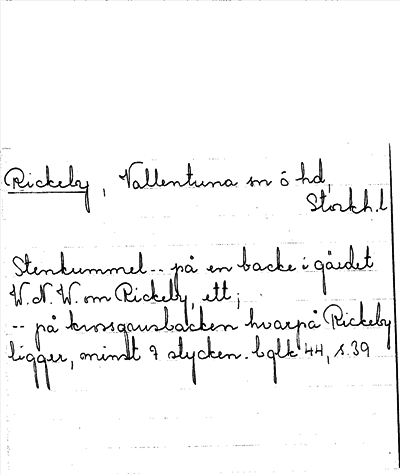 Rickeby, Vallentuna sn ó hd,
Stockh.l
Stenkummel -- på en backe i gärdet
W.N.W. om Rickeby, ett;
-- på krossgrusbacken hvarpå Rickeby
ligger, minst 9 stycken. bglk 44, s. 39